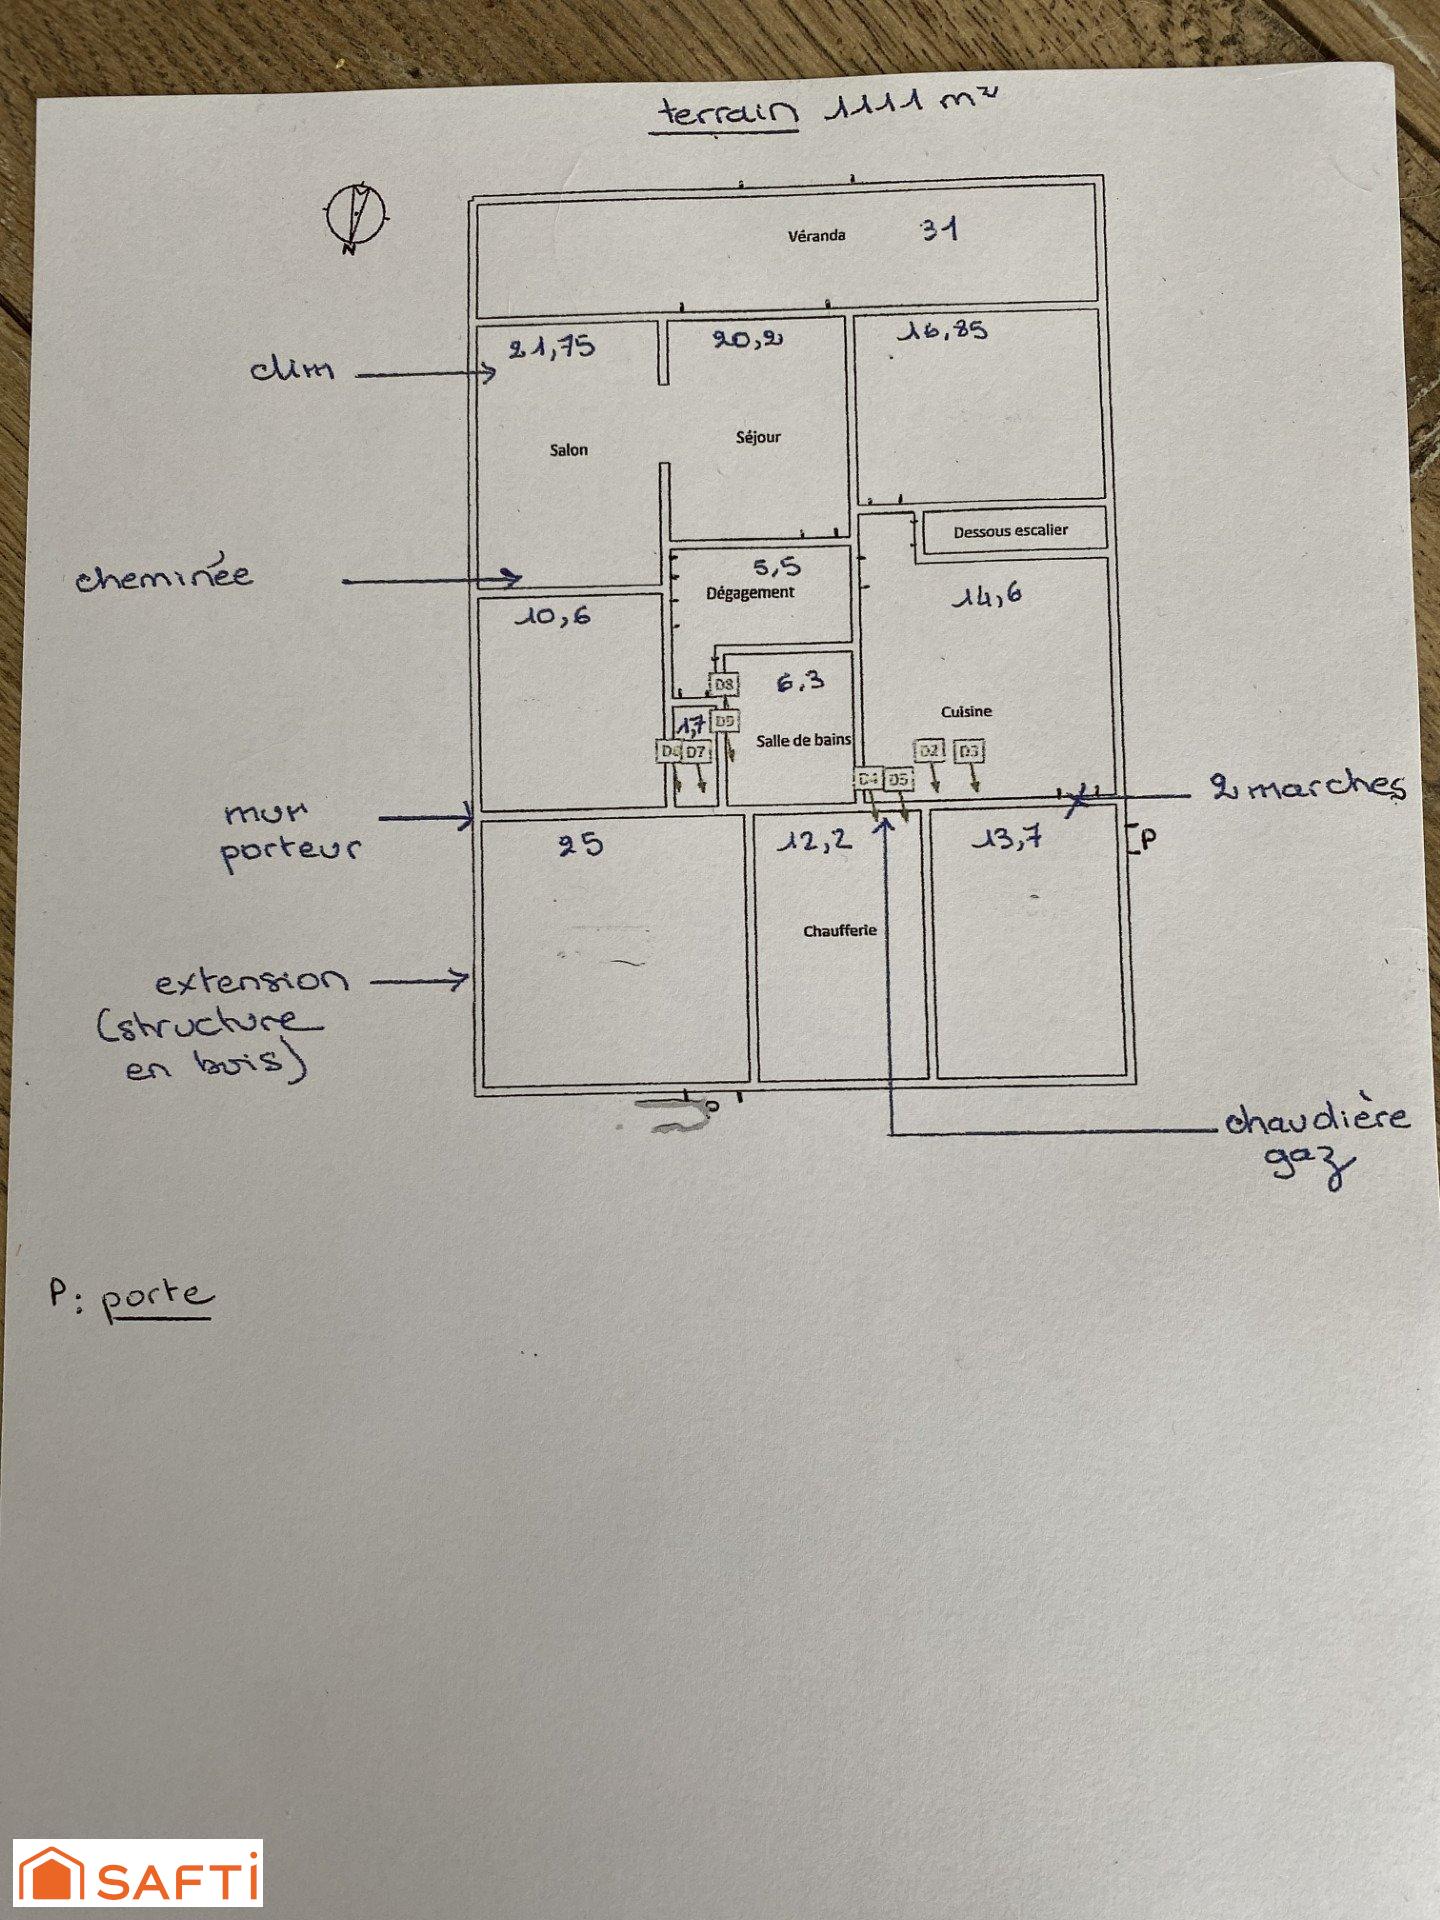 terrain 1111 m²
N
Véranda 31
21,75 20,2 16,85
clim
Salon
Séjour
Dessous escalier
cheminée
5,5
Dégagement
10,6
14,6
D8
6,3
1,7
D9
Salle de bains
Cuisine
D6 D7
D4 D5 D2 D3
2 marches
mur
porteur
25
12,2
13,7
P
Chaufferie
extension
(structure
en bois)
P
chaudière
gaz
P: porte
SAFTI